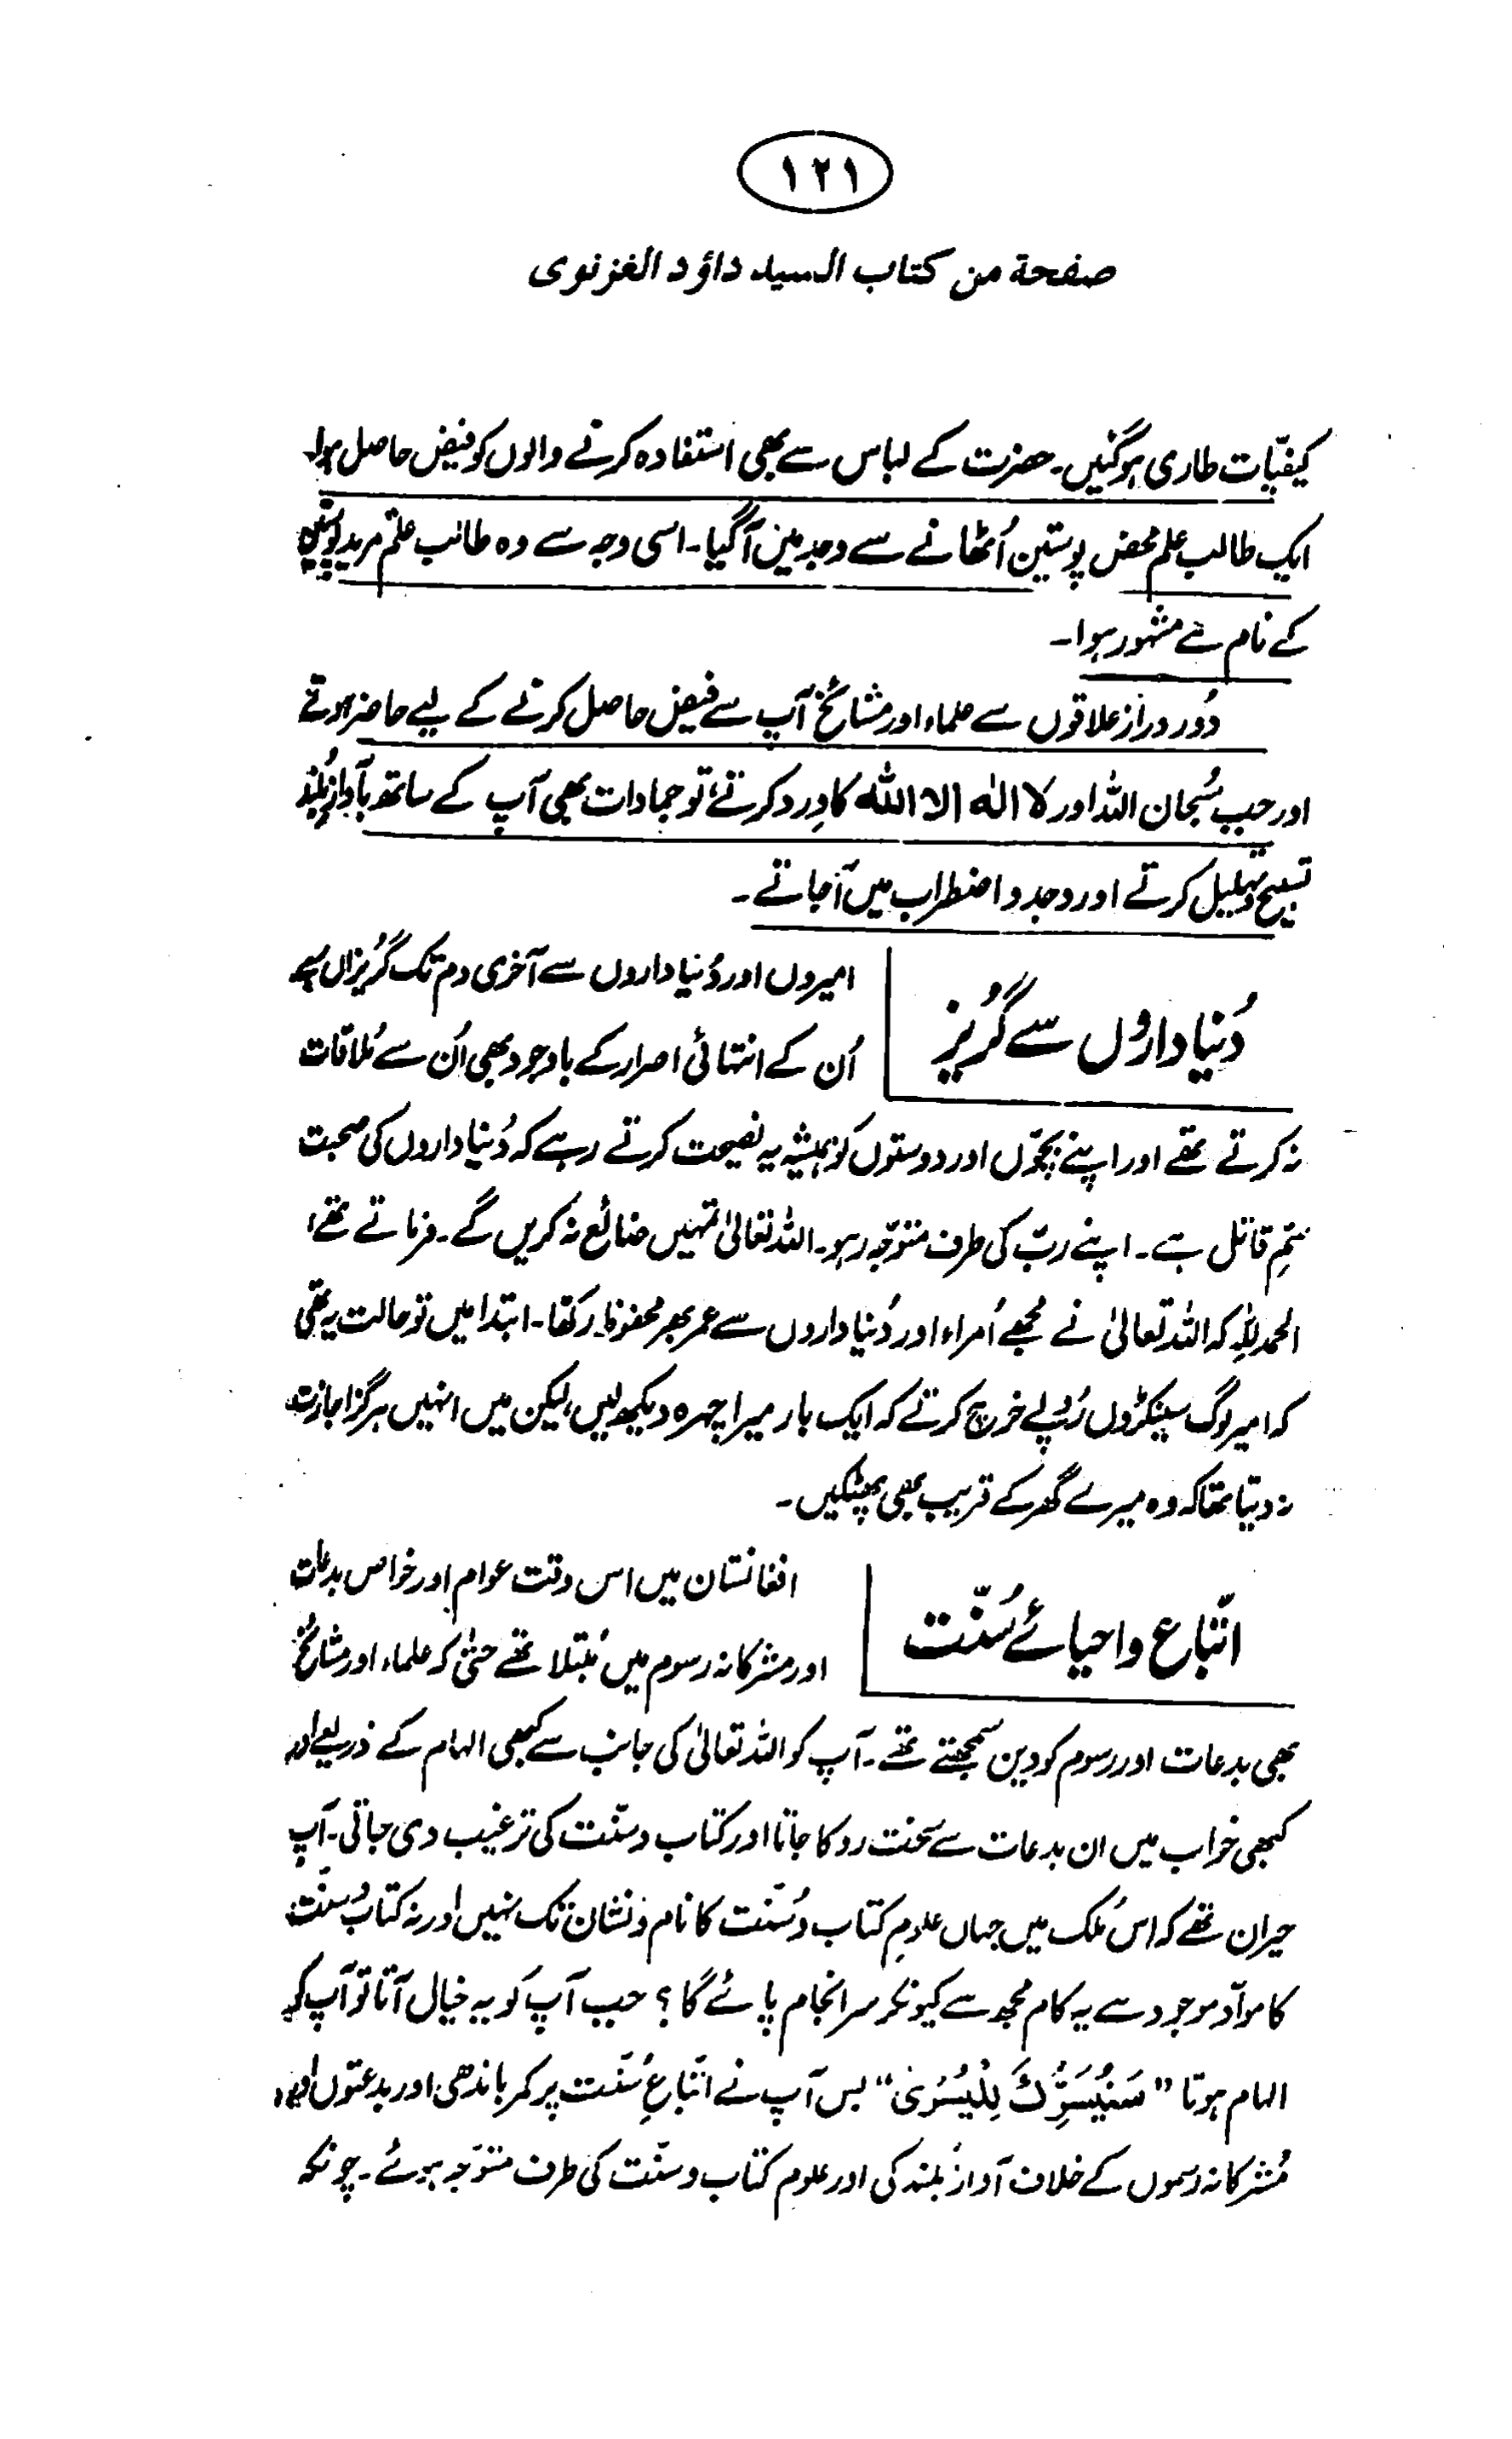 ۱۲۱
صفحة من كتاب السيد داؤد الغزنوى
کیفیّات طاری ہوگئیں۔ حضرت کے لباس سے بھی استفادہ کرنے والوں کو فیض حاصل ہوا۔
ایک طالب علم محض پوستین اُٹھانے سے وجد میں آگیا۔ اسی وجہ سے وہ طالب علم مرید پوستین
کے نام سے مشہور ہوا۔
دُور دراز علاقوں سے علماء اور مشائخ آپ سے فیض حاصل کرنے کے لیے حاضر ہوتے
اور جب سُبحان اللہ اور لا الٰہ الا اللہ کا وِرد کرتے، تو جمادات بھی آپ کے ساتھ بآوازِ بُلند
تسبیح و تہلیل کرتے اور وجد و اضطراب میں آجاتے۔
دُنیا داروں سے گُریز
امیروں اور دُنیا داروں سے آخری دم تک گُریزاں رہے
اُن کے انتہائی اصرار کے باوجود بھی اُن سے مُلاقات
نہ کرتے تھے اور اپنے بچّوں اور دوستوں کو ہمیشہ یہ نصیحت کرتے رہے کہ دُنیا داروں کی صحبت
سَمِّ قاتل ہے۔ اپنے ربّ کی طرف متوّجہ رہو۔ اللہ تعالیٰ تمہیں ضائع نہ کریں گے۔ فرماتے تھے،
الحمد للہِ کہ اللہ تعالیٰ نے مجھے اُمراء اور دُنیا داروں سے عمر بھر محفوظ رکھا۔ ابتدا میں تو حالت یہ تھی
کہ امیر لوگ سینکڑوں رُوپے خرچ کرتے کہ ایک بار میرا چہرہ دیکھ لیں، لیکن میں انہیں ہرگز اجازت
نہ دیتا تھا کہ وہ میرے گھر کے قریب بھی پھٹکیں۔
اتّباع و احیائے سُنّت
افغانستان میں اس وقت عوام اور خواص بدعات
اور مشرکانہ رسوم میں مُبتلا تھے حتیٰ کہ علماء اور مشائخ
بھی بدعات اور رسوم کو دین سمجھتے تھے۔ آپ کو اللہ تعالیٰ کی جانب سے کبھی الہام کے ذریعے اور
کبھی خواب میں ان بدعات سے سخت روکا جاتا اور کتاب و سنّت کی ترغیب دی جاتی۔ آپ
حیران تھے کہ اس مُلک میں جہاں علومِ کتاب و سُنّت کا نام و نشان تک نہیں اور نہ کتاب و سُنّت
کا موادّ موجود ہے یہ کام مجھ سے کیونکر سر انجام پائے گا؟ جب آپ کو یہ خیال آتا تو آپ کو
الہام ہوتا "سَنُیَسِّرُكَ لِلْیُسْرٰی" بس آپ نے اتّباعِ سُنّت پر کمر باندھی اور بدعتوں اور
مُشرکانہ رسموں کے خلاف آواز بُلند کی اور علوم کتاب و سنّت کی طرف متوّجہ ہوئے۔ چونکہ